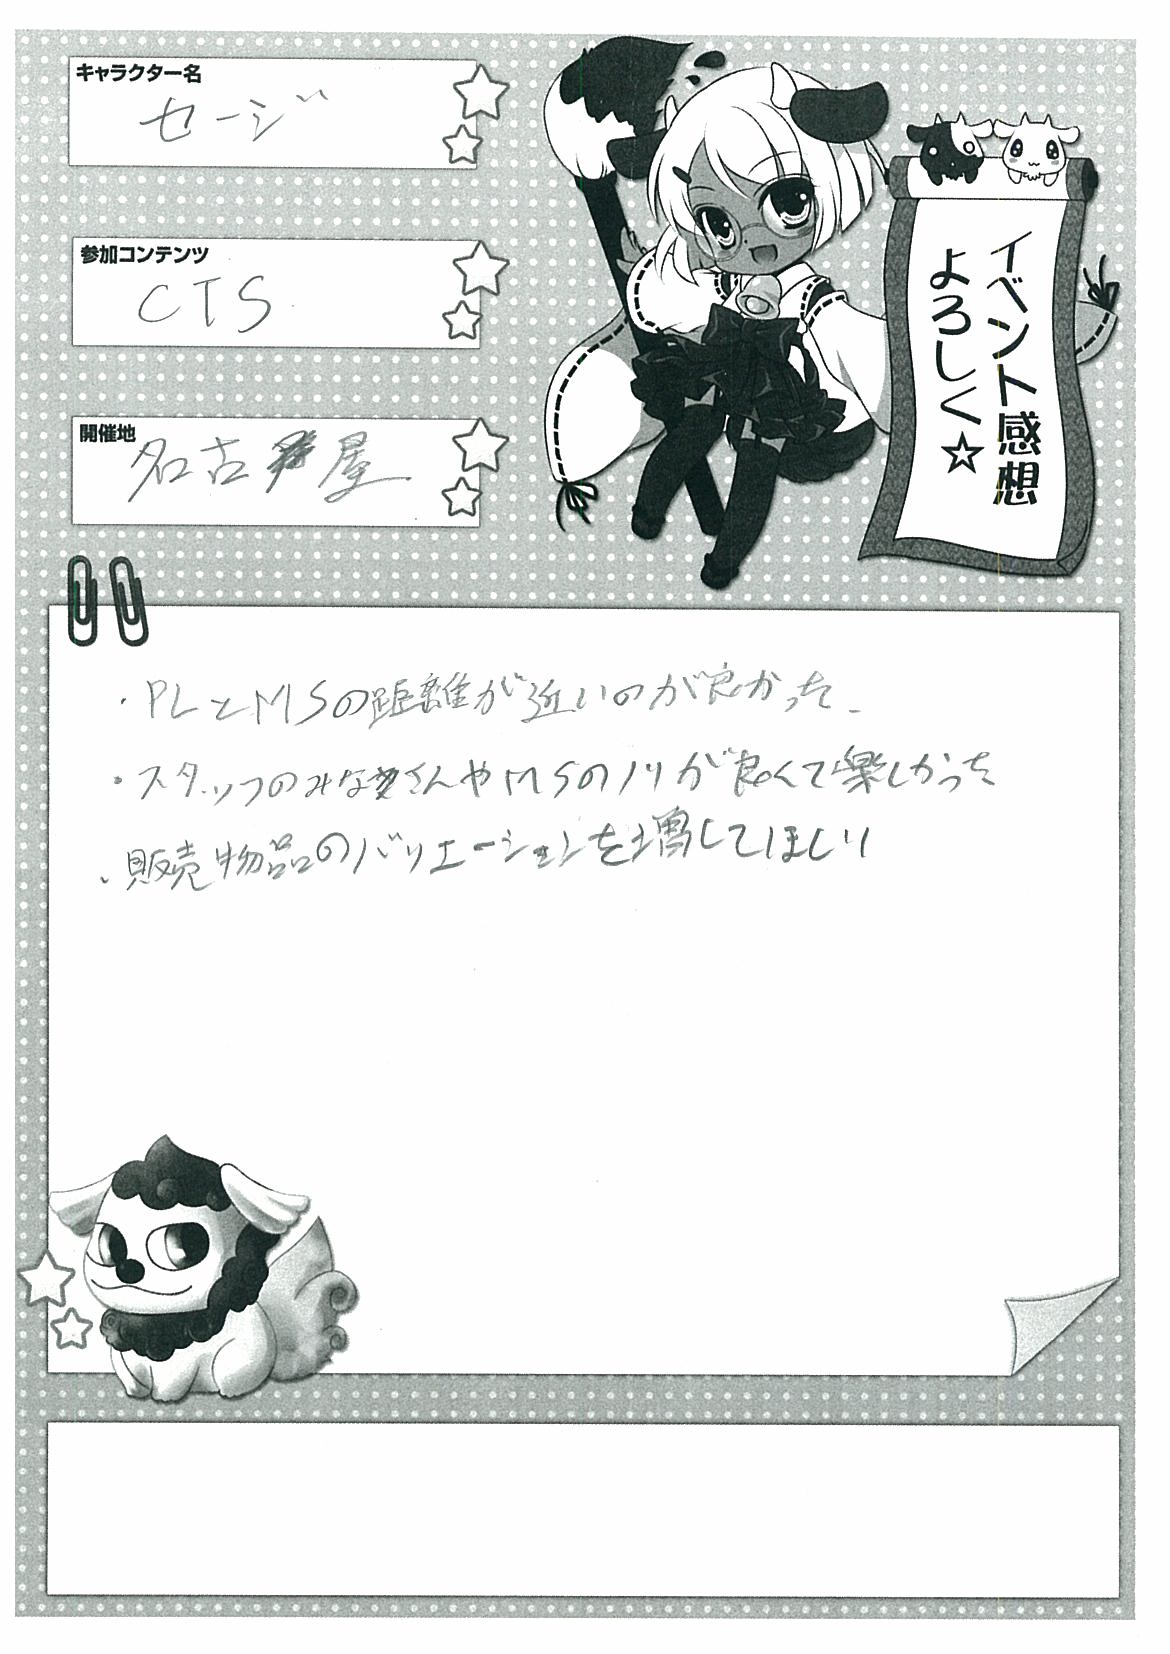 キャラクター名
セージ
参加コンテンツ
CTS
開催地
名古屋
イベント感想
よろしく☆
・PLとMSの距離が近いのが良かった
・スタッフのみなさんやMSのノリが良くて楽しかった
・販売物品のバリエーションを増してほしい